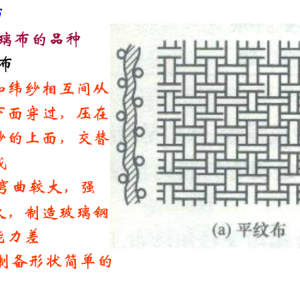 璃布的品种
布
和纬纱相互间从
下面穿过，压在
纱的上面，交替
成
弯曲较大，强
大，制造玻璃钢
能力差
制备形状简单的
(a) 平纹布